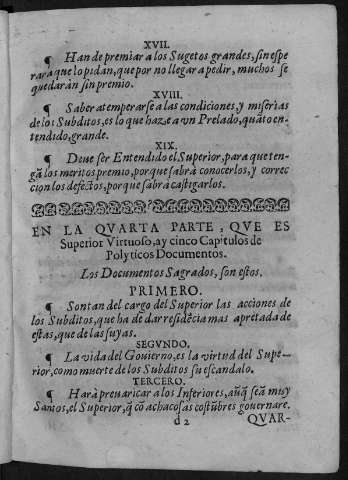 XVII.
¶ Han de premiar a los Sugetos grandes, sin espe
rar a que lo pidan, que por no llegar a pedir, muchos se
quedaràn sin premio.
XVIII.
¶ Saber atemperarse a las condiciones, y miserias
de los Subditos, es lo que haze a vn Prelado, quãto en-
tendido, grande.
XIX.
¶ Deue ser Entendido el Superior, para que ten-
gã los meritos premio, porque sabrà conocerlos, y correc
cion los defectos, porque sabrà castigarlos.
EN LA QVARTA PARTE, QVE ES
Superior Virtuoso, ay cinco Capitulos de
Polyticos Documentos.
Los Documentos Sagrados, son estos.
PRIMERO.
¶ Son tan del cargo del Superior las acciones de
los Subditos, que ha de dar residẽcia mas apretada de
estas, que de las suyas.
SEGVNDO.
¶ La vida del Gouierno, es la virtud del Supe-
rior, como muerte de los Subditos su escandalo.
TERCERO.
¶ Harà preuaricar a los Inferiores, aũq̃ seã muy
Santos, el Superior, q̃ cõ achacosas costũbres gouernare.
d2
QVAR-